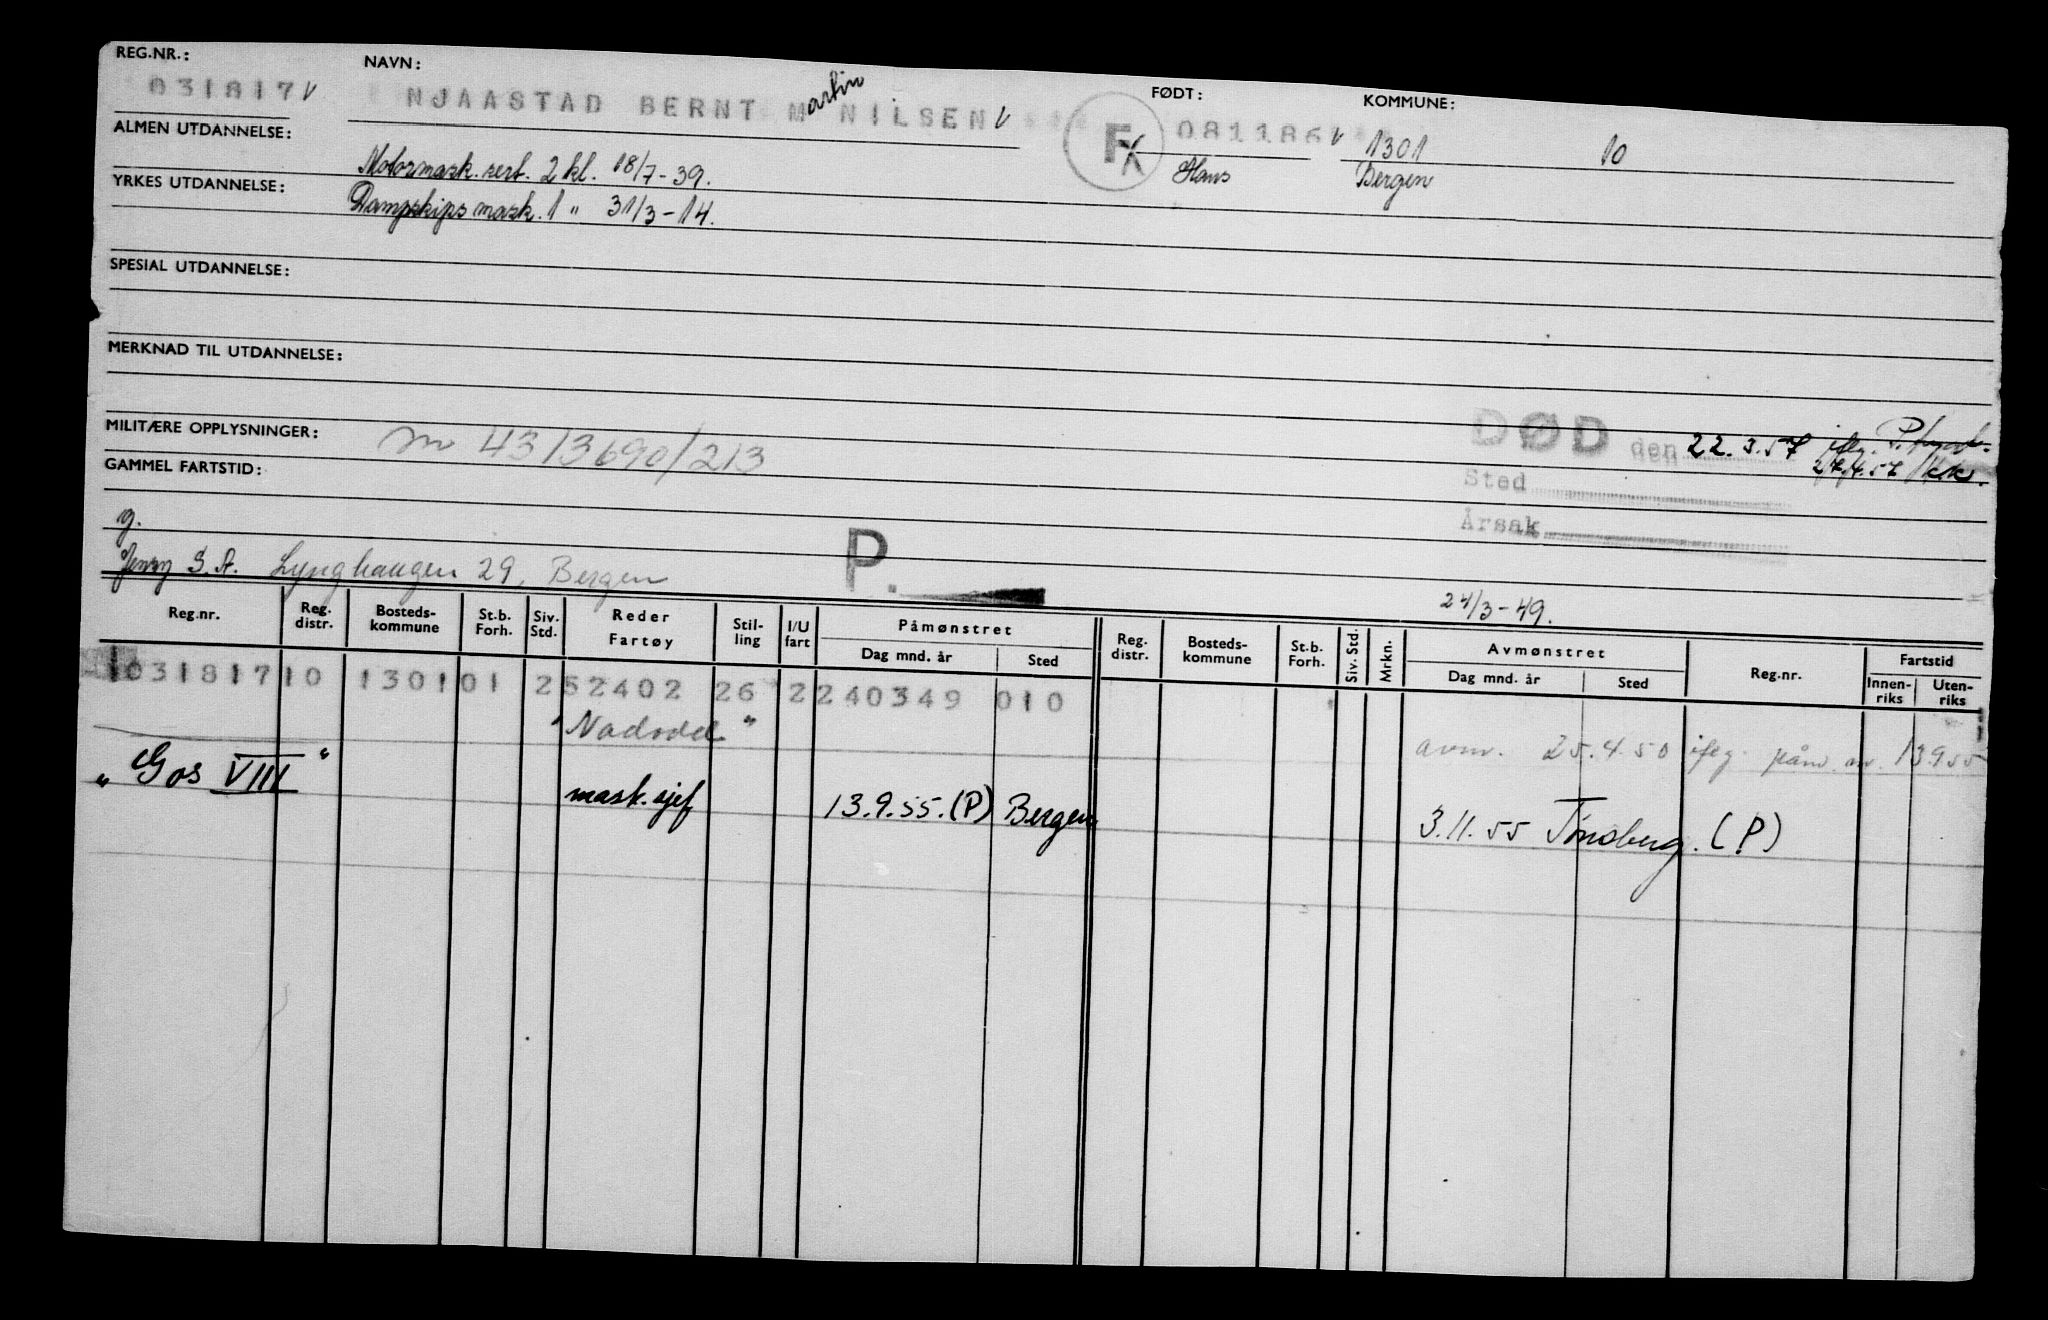 REG.NR.: NAVN: FØDT: KOMMUNE:
031817 v NJAASTAD BERNT Martin NILSEN v F 081186 v 1301 10
ALMEN UTDANNELSE: Hans Bergen
Motormask. sert. 2 kl. 18/7-39.
YRKES UTDANNELSE: Dampskips mask. 1 " 31/3-14.
SPESIAL UTDANNELSE:
MERKNAD TIL UTDANNELSE:
MILITÆRE OPPLYSNINGER: m 4313690/213
DØD den 22.3.57 ifлg.
27.4.57 KK.
GAMMEL FARTSTID: Sted
Årsak
g.
Jenny Lynghaugen 29, Bergen P.
24/3-49.
Reg.nr. Reg. distr. Bosteds- kommune St.b. Forh. Siv. Std. Reder Fartøy Stil- ling I/U fart Påmønstret Dag mnd. år Sted Reg. distr. Bosteds- kommune St.b. Forh. Siv. Std. Mrkn. Avmønstret Dag mnd. år Sted Reg.nr. Fartstid Innen- riks Uten- riks
1031817 10 1301 01 2 52402 26 2 240349 010
"Nadodd" avm. 25.4.50 ifлg. 13955
"Gos VIII" mask.sjef 13.9.55. (P) Bergen 3.11.55 Tønsberg. (P)